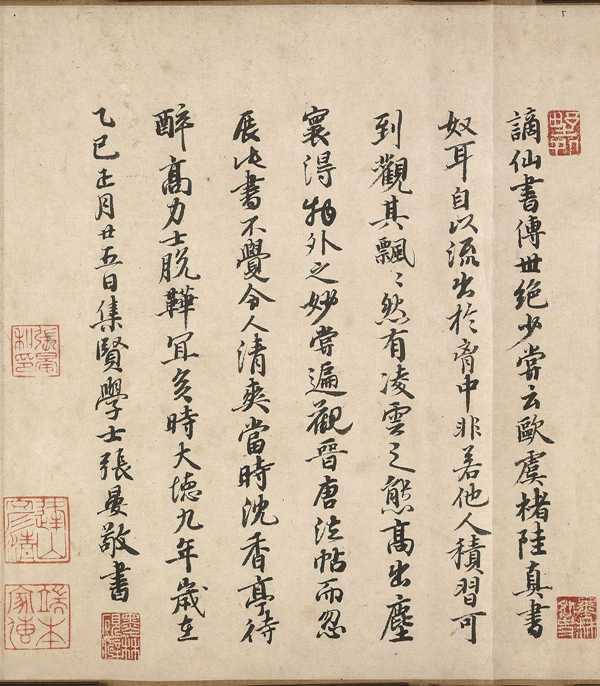 謫仙書傳世絕少嘗云歐虞褚陸真書
奴耳自以流出於胷中非若他人積習可
到觀其飄〻然有凌雲之態高出塵
寰得物外之妙嘗遍觀晉唐法帖而忽
展此書不覺令人清爽當時沈香亭待
醉高力士脫鞾冝矣時大德九年歲在
乙巳正月廿五日集賢學士張晏敬書
張晏私印
端本家傳